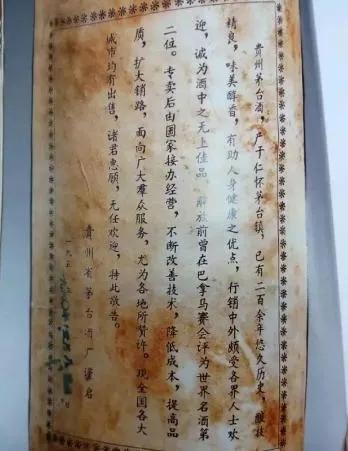 贵州茅台酒，产于仁怀茅台镇，已有二百余年悠久历史，酿技
精良，味美醇香，有助人身健康之优点，行销中外颇受各界人士欢
迎，诚为酒中之无上佳品，解放前曾在巴拿马赛会评为世界名酒第
二位。专卖后由国家接办经营，不断改善技术，降低成本，提高品
质，扩大销路，面向广大群众服务，尤为各地所赞许。现全国各大
城市均有出售，诸君惠顾，无任欢迎，特此敬告。
贵州省茅台酒厂谨启
一九五